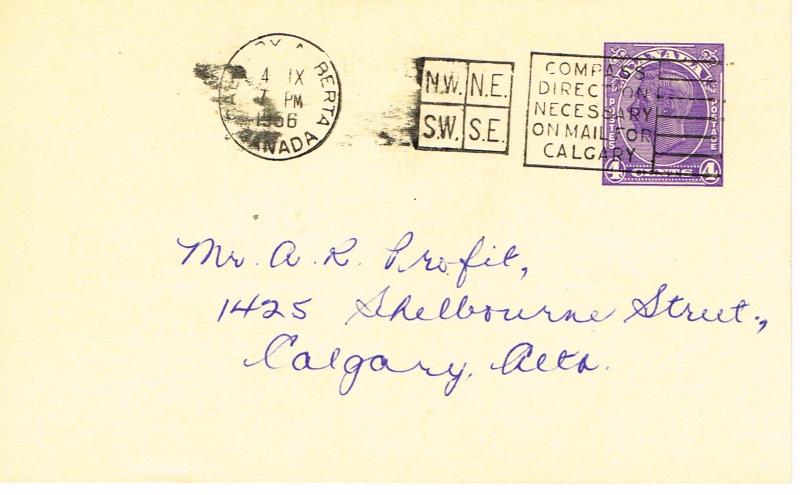 CALGARY ALBERTA
4 IX
PM
1956
CANADA
N.W. N.E.
S.W. S.E.
COMPASS
DIRECTION
NECESSARY
ON MAIL FOR
CALGARY
CANADA
POSTES POSTAGE
4 CENTS 4
Mr. A. R. Profit,
1425 Shelbourne Street,
Calgary, Alta.